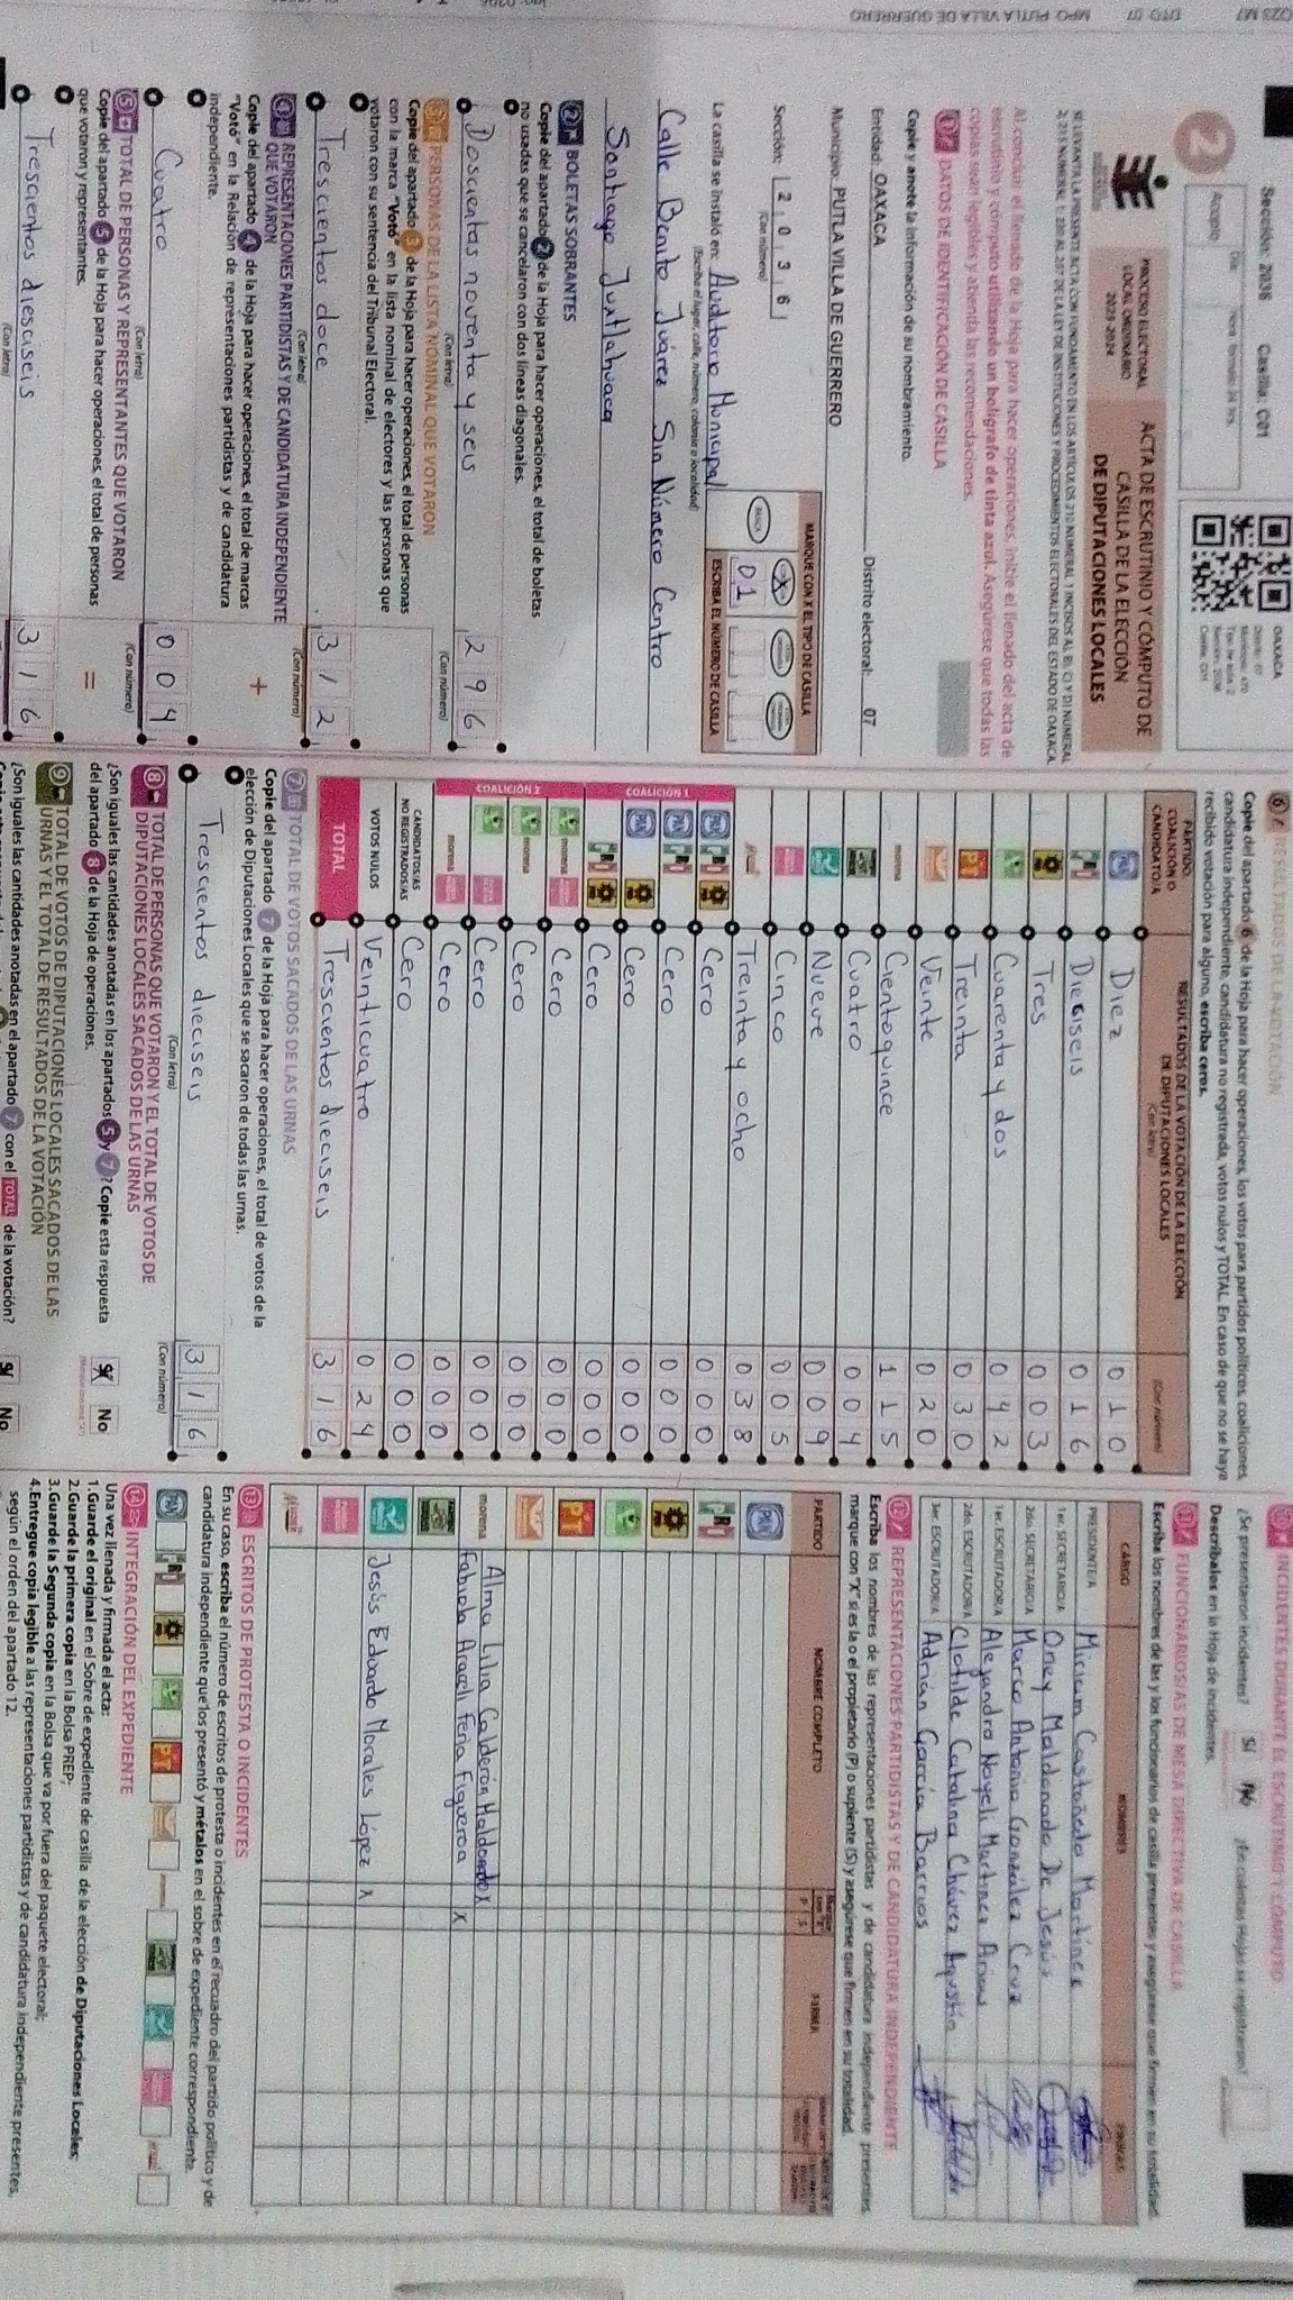 Sección: 2036 Casilla: C01
2
Acopio
Día
Hora formato 24 hrs.
OAXACA
PROCESO ELECTORAL
LOCAL ORDINARIO
2023-2024
ACTA DE ESCRUTINIO Y CÓMPUTO DE
CASILLA DE LA ELECCIÓN
DE DIPUTACIONES LOCALES
Al concluir el llenado de la Hoja para hacer operaciones, inicie el llenado del acta de
escrutinio y cómputo utilizando un bolígrafo de tinta azul. Asegúrese que todas las
copias sean legibles y atienda las recomendaciones.
1 DATOS DE IDENTIFICACIÓN DE CASILLA
Copie y anote la información de su nombramiento.
Entidad: OAXACA Distrito electoral: 07
Municipio: PUTLA VILLA DE GUERRERO
Sección: 2 0 3 6
(Con número)
MARQUE CON X EL TIPO DE CASILLA
BÁSICA
X
ESCRIBA EL NÚMERO DE CASILLA
0 1
La casilla se instaló en: Auditorio Municipal
(Escriba el lugar, calle, número, colonia o localidad)
Calle Benito Juárez Sin Número Centro
Santiago Juxtlahuaca
2 BOLETAS SOBRANTES
Copie del apartado 2 de la Hoja para hacer operaciones, el total de boletas
no usadas que se cancelaron con dos líneas diagonales.
Doscientas noventa y seis 2 9 6
(Con letra) (Con número)
3 PERSONAS DE LA LISTA NOMINAL QUE VOTARON
Copie del apartado 3 de la Hoja para hacer operaciones, el total de personas
con la marca "Votó" en la lista nominal de electores y las personas que
votaron con su sentencia del Tribunal Electoral.
Trescientos doce 3 1 2
(Con letra) (Con número)
4 REPRESENTACIONES PARTIDISTAS Y DE CANDIDATURA INDEPENDIENTE
QUE VOTARON
Copie del apartado 4 de la Hoja para hacer operaciones, el total de marcas
"Votó" en la Relación de representaciones partidistas y de candidatura
independiente.
+
Cuatro 0 0 4
(Con letra) (Con número)
5 TOTAL DE PERSONAS Y REPRESENTANTES QUE VOTARON
Copie del apartado 5 de la Hoja para hacer operaciones, el total de personas
que votaron y representantes.
=
Trescientos diesciseis 3 1 6
(Con letra)
6 RESULTADOS DE LA VOTACIÓN
Copie del apartado 6 de la Hoja para hacer operaciones, los votos para partidos políticos, coaliciones,
candidatura independiente, candidatura no registrada, votos nulos y TOTAL. En caso de que no se haya
recibido votación para alguno, escriba ceros.
PARTIDO,
COALICIÓN O
CANDIDATO/A
RESULTADOS DE LA VOTACIÓN DE LA ELECCIÓN
DE DIPUTACIONES LOCALES
(Con letra)
(Con número)
PAN Diez 0 1 0
PRI Dieciseis 0 1 6
PRD Tres 0 0 3
Cuarenta y dos 0 4 2
PT Treinta 0 3 0
Veinte 0 2 0
morena Ciento quince 1 1 5
Cuatro 0 0 4
Nueve 0 0 9
Cinco 0 0 5
Treinta y ocho 0 3 8
COALICIÓN 1
PAN PRI PRD Cero 0 0 0
PAN PRI Cero 0 0 0
PAN PRD Cero 0 0 0
PRI PRD Cero 0 0 0
COALICIÓN 2
morena Cero 0 0 0
morena Cero 0 0 0
Cero 0 0 0
morena Cero 0 0 0
CANDIDATOS/AS
NO REGISTRADOS/AS Cero 0 0 0
VOTOS NULOS Veinticuatro 0 2 4
TOTAL Trescientos dieciseis 3 1 6
7 TOTAL DE VOTOS SACADOS DE LAS URNAS
Copie del apartado 7 de la Hoja para hacer operaciones, el total de votos de la
elección de Diputaciones Locales que se sacaron de todas las urnas.
Trescientos dieciseis 3 1 6
(Con letra) (Con número)
8 TOTAL DE PERSONAS QUE VOTARON Y EL TOTAL DE VOTOS DE
DIPUTACIONES LOCALES SACADOS DE LAS URNAS
¿Son iguales las cantidades anotadas en los apartados 5 y 7? Copie esta respuesta
del apartado 8 de la Hoja de operaciones.
Sí No
9 TOTAL DE VOTOS DE DIPUTACIONES LOCALES SACADOS DE LAS
URNAS Y EL TOTAL DE RESULTADOS DE LA VOTACIÓN
¿Son iguales las cantidades anotadas en el apartado 7 con el TOTAL de la votación?
Sí No
10 INCIDENTES DURANTE EL ESCRUTINIO Y CÓMPUTO
¿Se presentaron incidentes? Sí No ¿En cuántas Hojas se registraron?
Descríbalos en la Hoja de incidentes.
11 FUNCIONARIOS/AS DE MESA DIRECTIVA DE CASILLA
Escriba los nombres de las y los funcionarios de casilla presentes y asegúrese que firmen en su totalidad.
CARGO NOMBRES FIRMAS
PRESIDENTE/A Miriam Castañeda Martínez
1er. SECRETARIO/A Oney Maldonado De Jesús
2do. SECRETARIO/A Marco Antonio González Cruz
1er. ESCRUTADOR/A Alejandra Nayeli Martínez
2do. ESCRUTADOR/A Clotilde Catalina Chávez Agustín
3er. ESCRUTADOR/A Adrián García Barrios
12 REPRESENTACIONES PARTIDISTAS Y DE CANDIDATURA INDEPENDIENTE
Escriba los nombres de las representaciones partidistas y de candidatura independiente presentes,
marque con "X" si es la o el propietario (P) o suplente (S) y asegúrese que firmen en su totalidad.
PARTIDO NOMBRE COMPLETO P S FIRMA
PAN
PRI
PRD
PT
morena Alma Lilia Calderón Maldonado X
Fabiola Araceli Feria Figueroa X
Jesús Eduardo Morales López X
13 ESCRITOS DE PROTESTA O INCIDENTES
En su caso, escriba el número de escritos de protesta o incidentes en el recuadro del partido político y de
candidatura independiente que los presentó y métalos en el sobre de expediente correspondiente.
PAN PRI PRD PT
14 INTEGRACIÓN DEL EXPEDIENTE
Una vez llenada y firmada el acta:
1.Guarde el original en el Sobre de expediente de casilla de la elección de Diputaciones Locales;
2.Guarde la primera copia en la Bolsa PREP;
3.Guarde la Segunda copia en la Bolsa que va por fuera del paquete electoral;
4.Entregue copia legible a las representaciones partidistas y de candidatura independiente presentes,
según el orden del apartado 12.
DTO 07 MPO. PUTLA VILLA DE GUERRERO